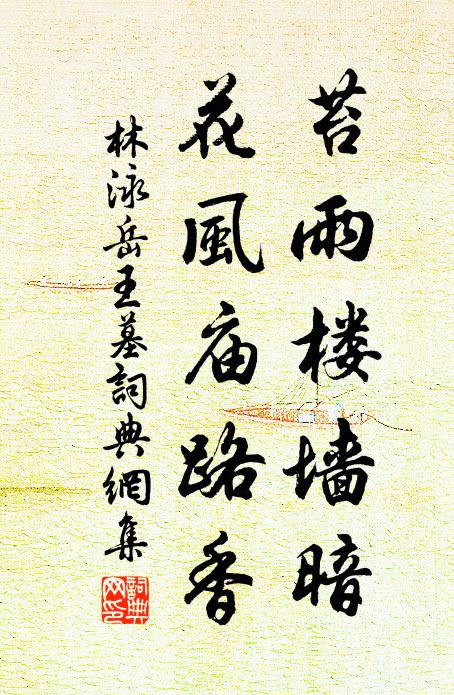 苔雨楼墙暗
花風庙路香
林泳岳王墓詞典網集
詞典